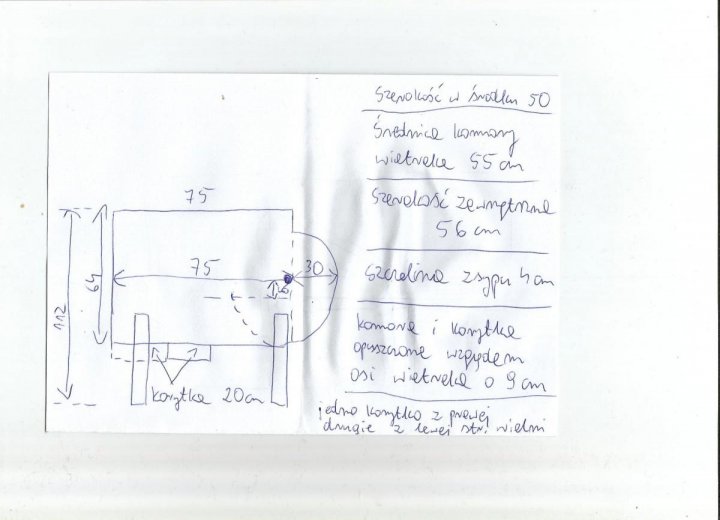 szerokość w środku 50
średnica komory
wietreka 55 cm
szerokość zewnętrzna
56 cm
szczelina zsypu 4 cm
komora i korytka
opuszczone względem
osi wietreka o 9 cm
jedno korytko z prawej
drugie z lewej str.
75
75
30
64
112
korytka 20cm